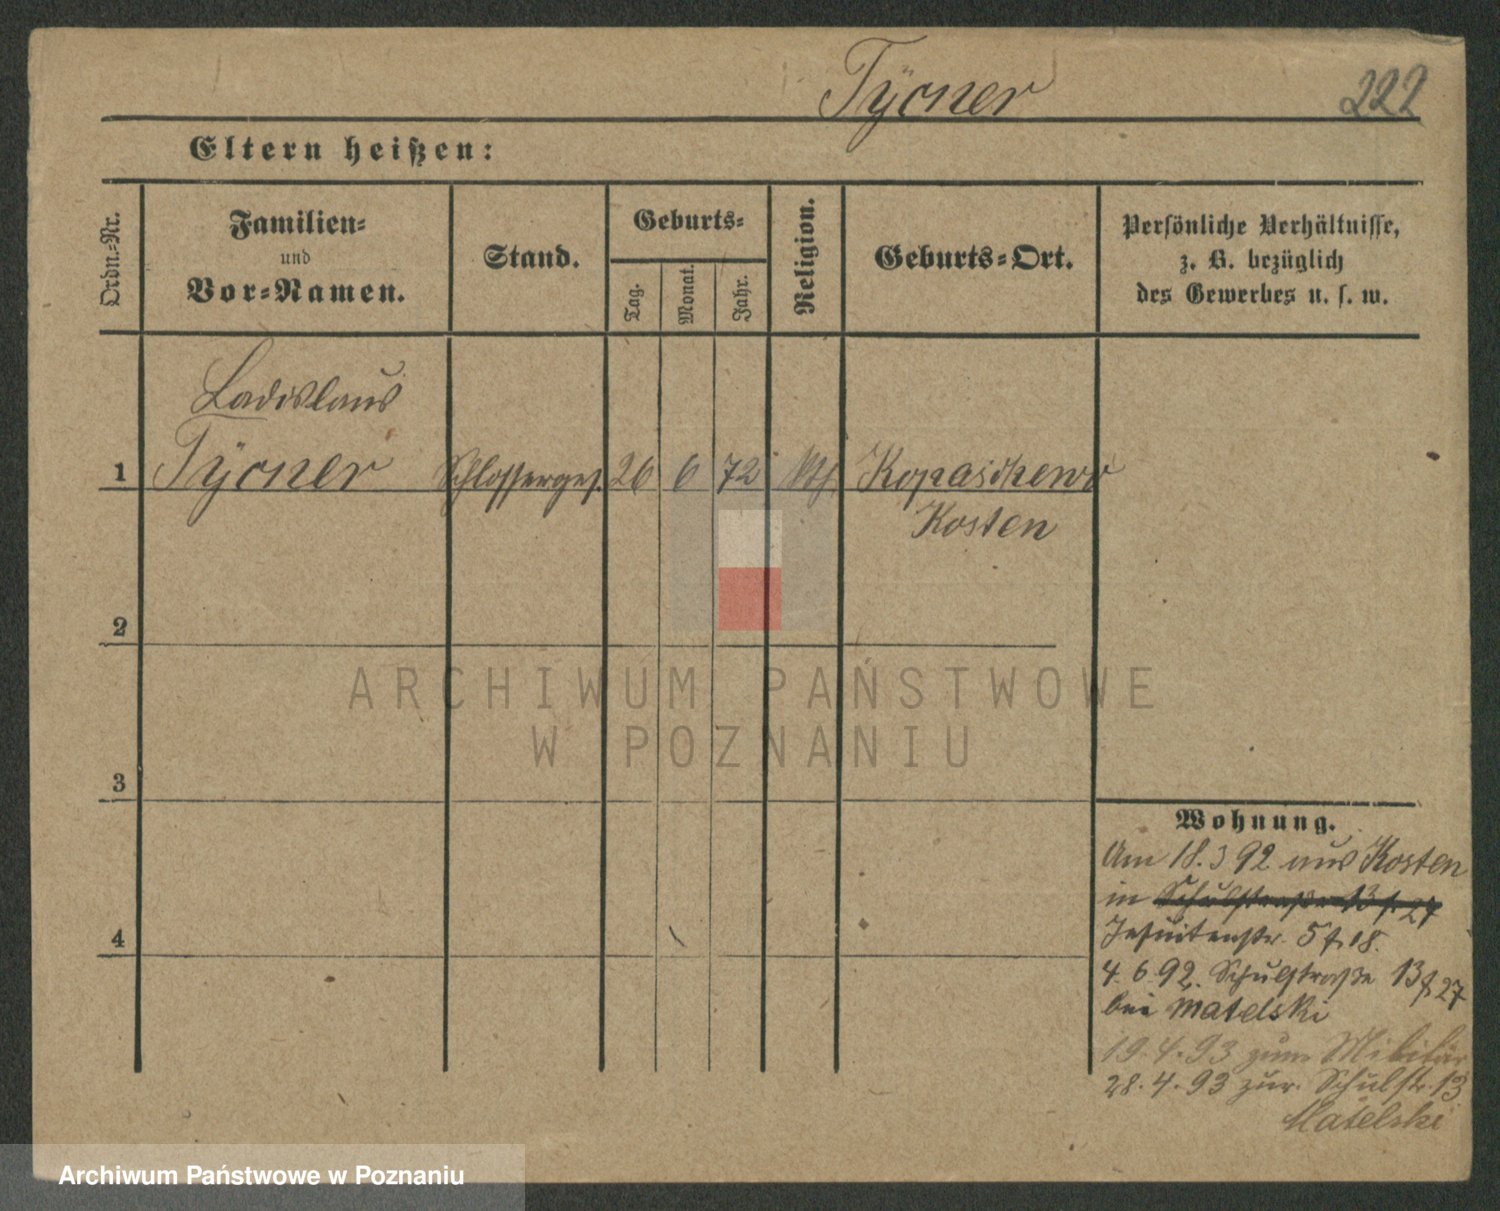 Tÿcner
222
Eltern heißen:
Ordn.-Nr.
Familien-
und
Vor-Namen.
Stand.
Geburts-
Tag.
Monat.
Jahr.
Religion.
Geburts-Ort.
Persönliche Verhältnisse,
z. B. bezüglich
des Gewerbes u. s. w.
Ladislaus
1 Tÿcner Schlosserges. 26 6 72 kth.
Kosten
2
3
4
ARCHIWUM PAŃSTWOWE
W POZNANIU
Wohnung.
Am 18.3 92 aus Kosten
in Schulstraße 13 f 27
Jesuitenstr. 5 f 18.
4.6.92. Schulstraße 13 f 27
bei Matelski
19.4.93 zum Militär
28.4.93 zur. Schulstr. 13
Matelski
Archiwum Państwowe w Poznaniu